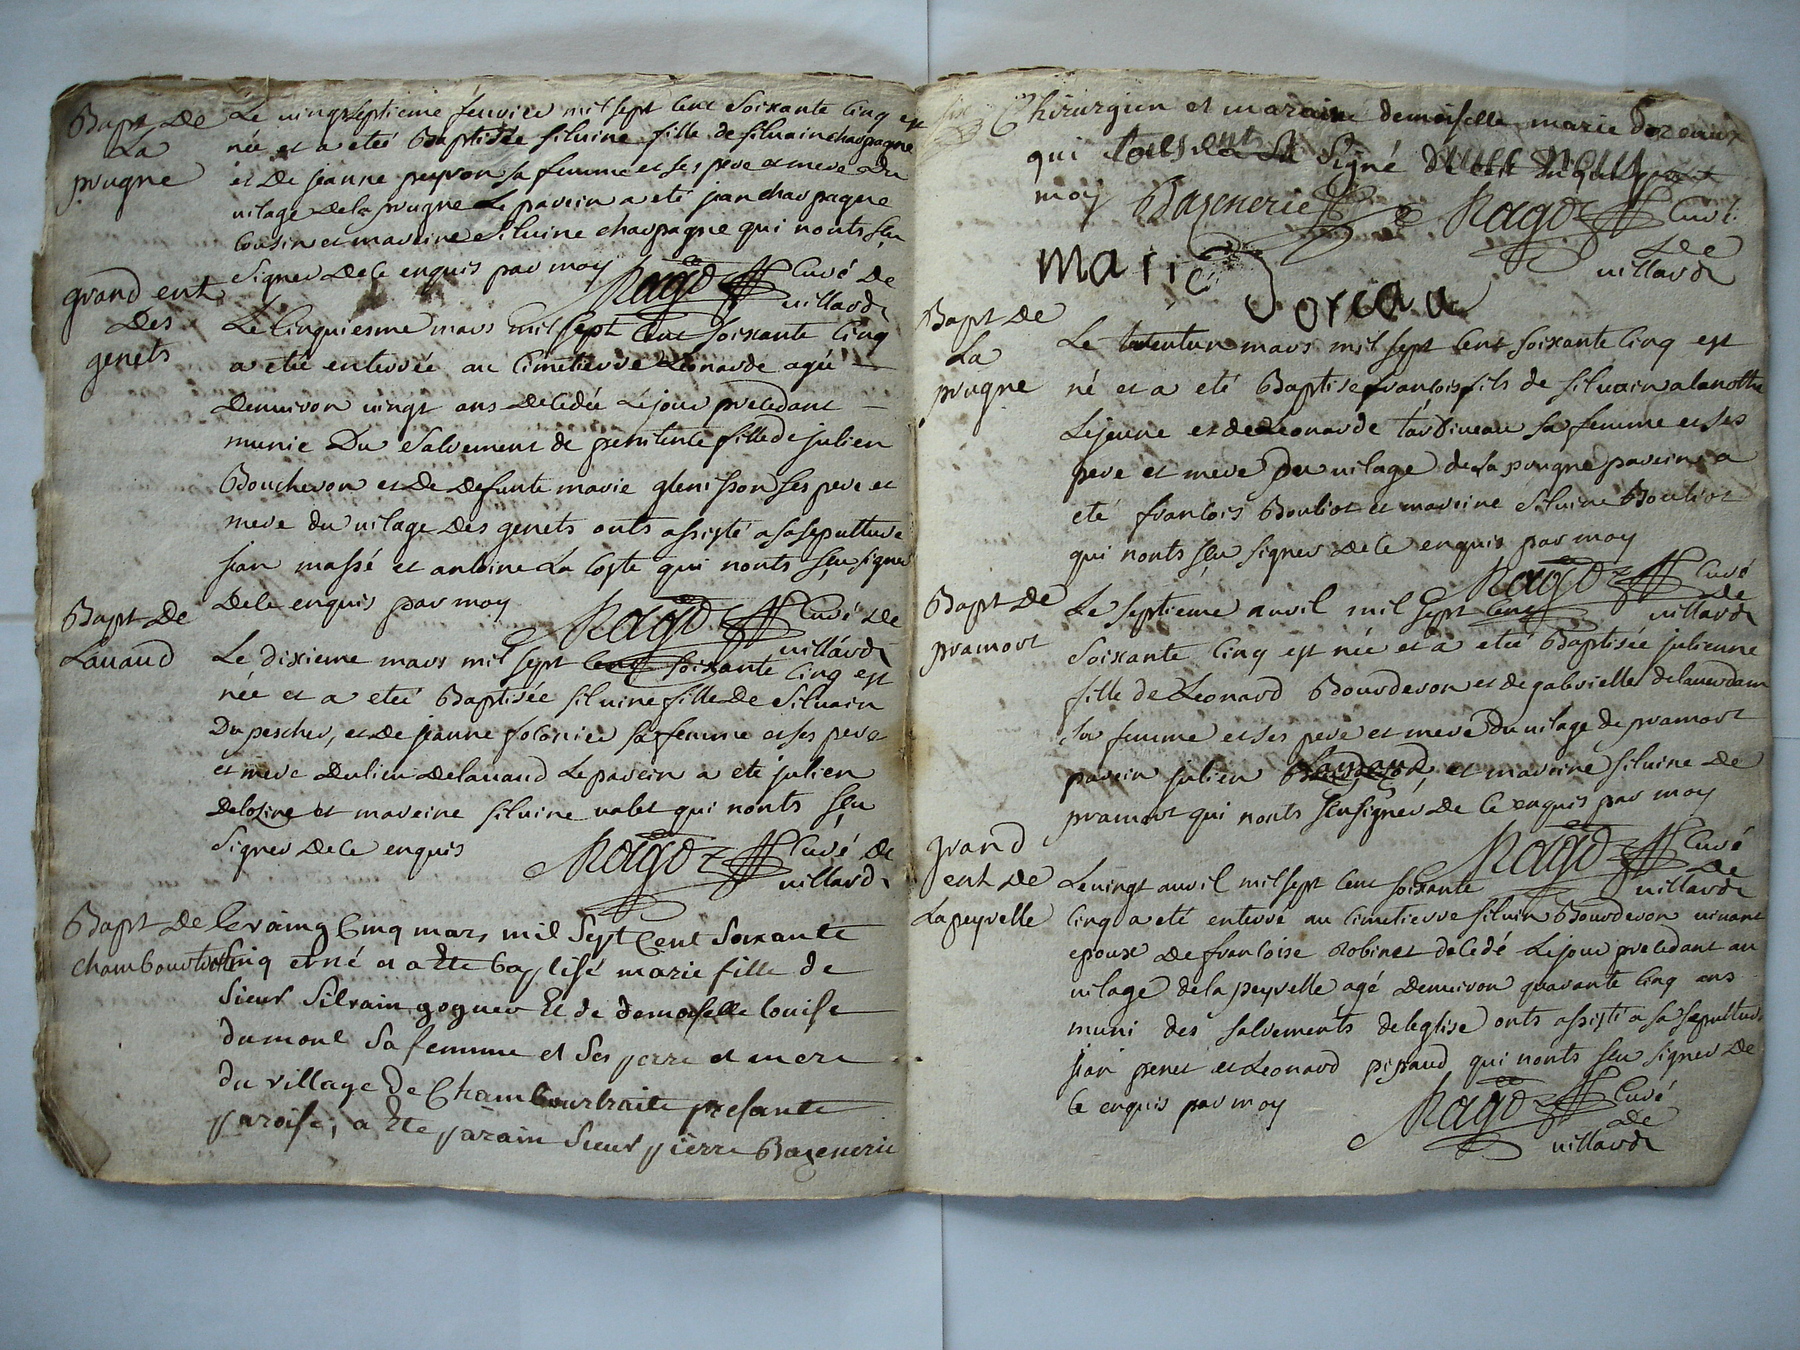 Bapt De
La
prugne
Le vingtseptieme fevrier mil sept cent soixante cinq est
née et a eteé Baptisée silvine fille de silvain charpagne
et De jeanne peyron sa femme et ses pere et mere du
vilage de la prugne Le parein a eté jean charpagne
Cousin et mareine silvine charpagne qui nonts sçu
signer de ce enquis par moy Ragot Curé De
villard
grand ent
Des
genets
Le Cinquiesme mars mil sept cent soixante cinq
a eteé enterrée au Cimetierre Léonarde agée
Denviron vingt ans decedée Le jour precedant
munie Du Sacrement de penitente fille de julien
Boucheron et De Defunte marie glenisson ses pere et
mere du vilage Des genets onts assisté a sa sepulture
jean massé et antoine La Coste qui nonts sçu signer
De ce enquis par moy Ragot Curé de
villard
Bapt De
Lavaud
Le dixieme mars mil sept cent soixante cinq est
née et a eteé Baptisée silvine fille De silvain
Dupescher, et De jeanne solonier sa femme et ses pere
et mere Du lieu De lavaud Le parein a eté julien
et mareine silvine valet qui nonts sçu
signer De ce enquis Ragot Curé De
villard
Bapt De
le vaingt Cinq mars mil Sept Cent Soixante
Cinq et né et a Ete baptisé marie fille de
Sieur Silvain goguer Et de demoiselle louise
dumont Sa femme et Ses perre et mere
du village De Chambourtraite presante
paroise, a Ete parain Sieur pierre Bazenerie
Chirurgien et maraine demoiselle marie Doreaux
qui signé
moy Bazenerie Ragot Curé
De
villard
marie Doreau
Bapt De
La
prugne
Le trentun mars mil sept cent soixante cinq est
né et a eté Baptisé francois fils de silvain alanothe
Lejeune et de Leonarde tardiveau sa femme et ses
pere et mere Du vilage de la prugne parein a
eté francois Bouliot et mareine silvine Bouliot
qui nonts sçu signer De ce enquis par moy
Ragot Curé
de
villard
Bapt De
pramort
Le septieme avril mil sept cent
soixante cinq est née et a eteé Baptisée julienne
fille de Leonard Bourderon et de gabrielle
sa femme et ses pere et mere Du vilage de pramort
parein julien et mareine silvine De
pramort qui nonts sçu signer De ce enquis par moy
Ragot Curé
De
villard
grand
ent De
La peyrelle
Le vingt avril mil sept cent soixante
Cinq a eté enterré au Cimetierre silvin Bourderon vivant
epoux De francoise Robinet decedé Le jour precedant au
vilage de la peyrelle agé Denviron quarante cinq ans
muni des sacrements de leglise onts assisté a sa sepulture
jean penet et Leonard pissaud qui nonts sçu signer De
Ce enquis par moy Ragot Curé
De
villard